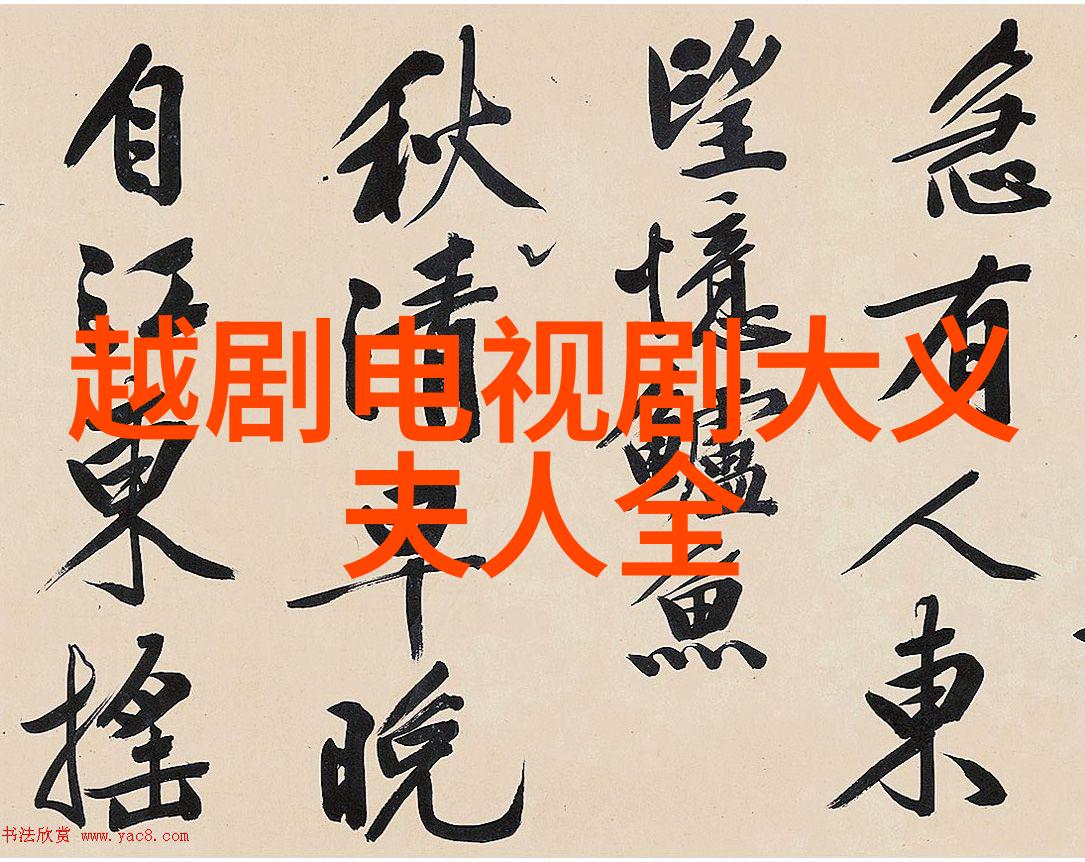 越剧电视剧大义
夫人全
急有人東
望憶鱸魚
秋清晚
自江東搖
书法欣赏 www.yac8.com